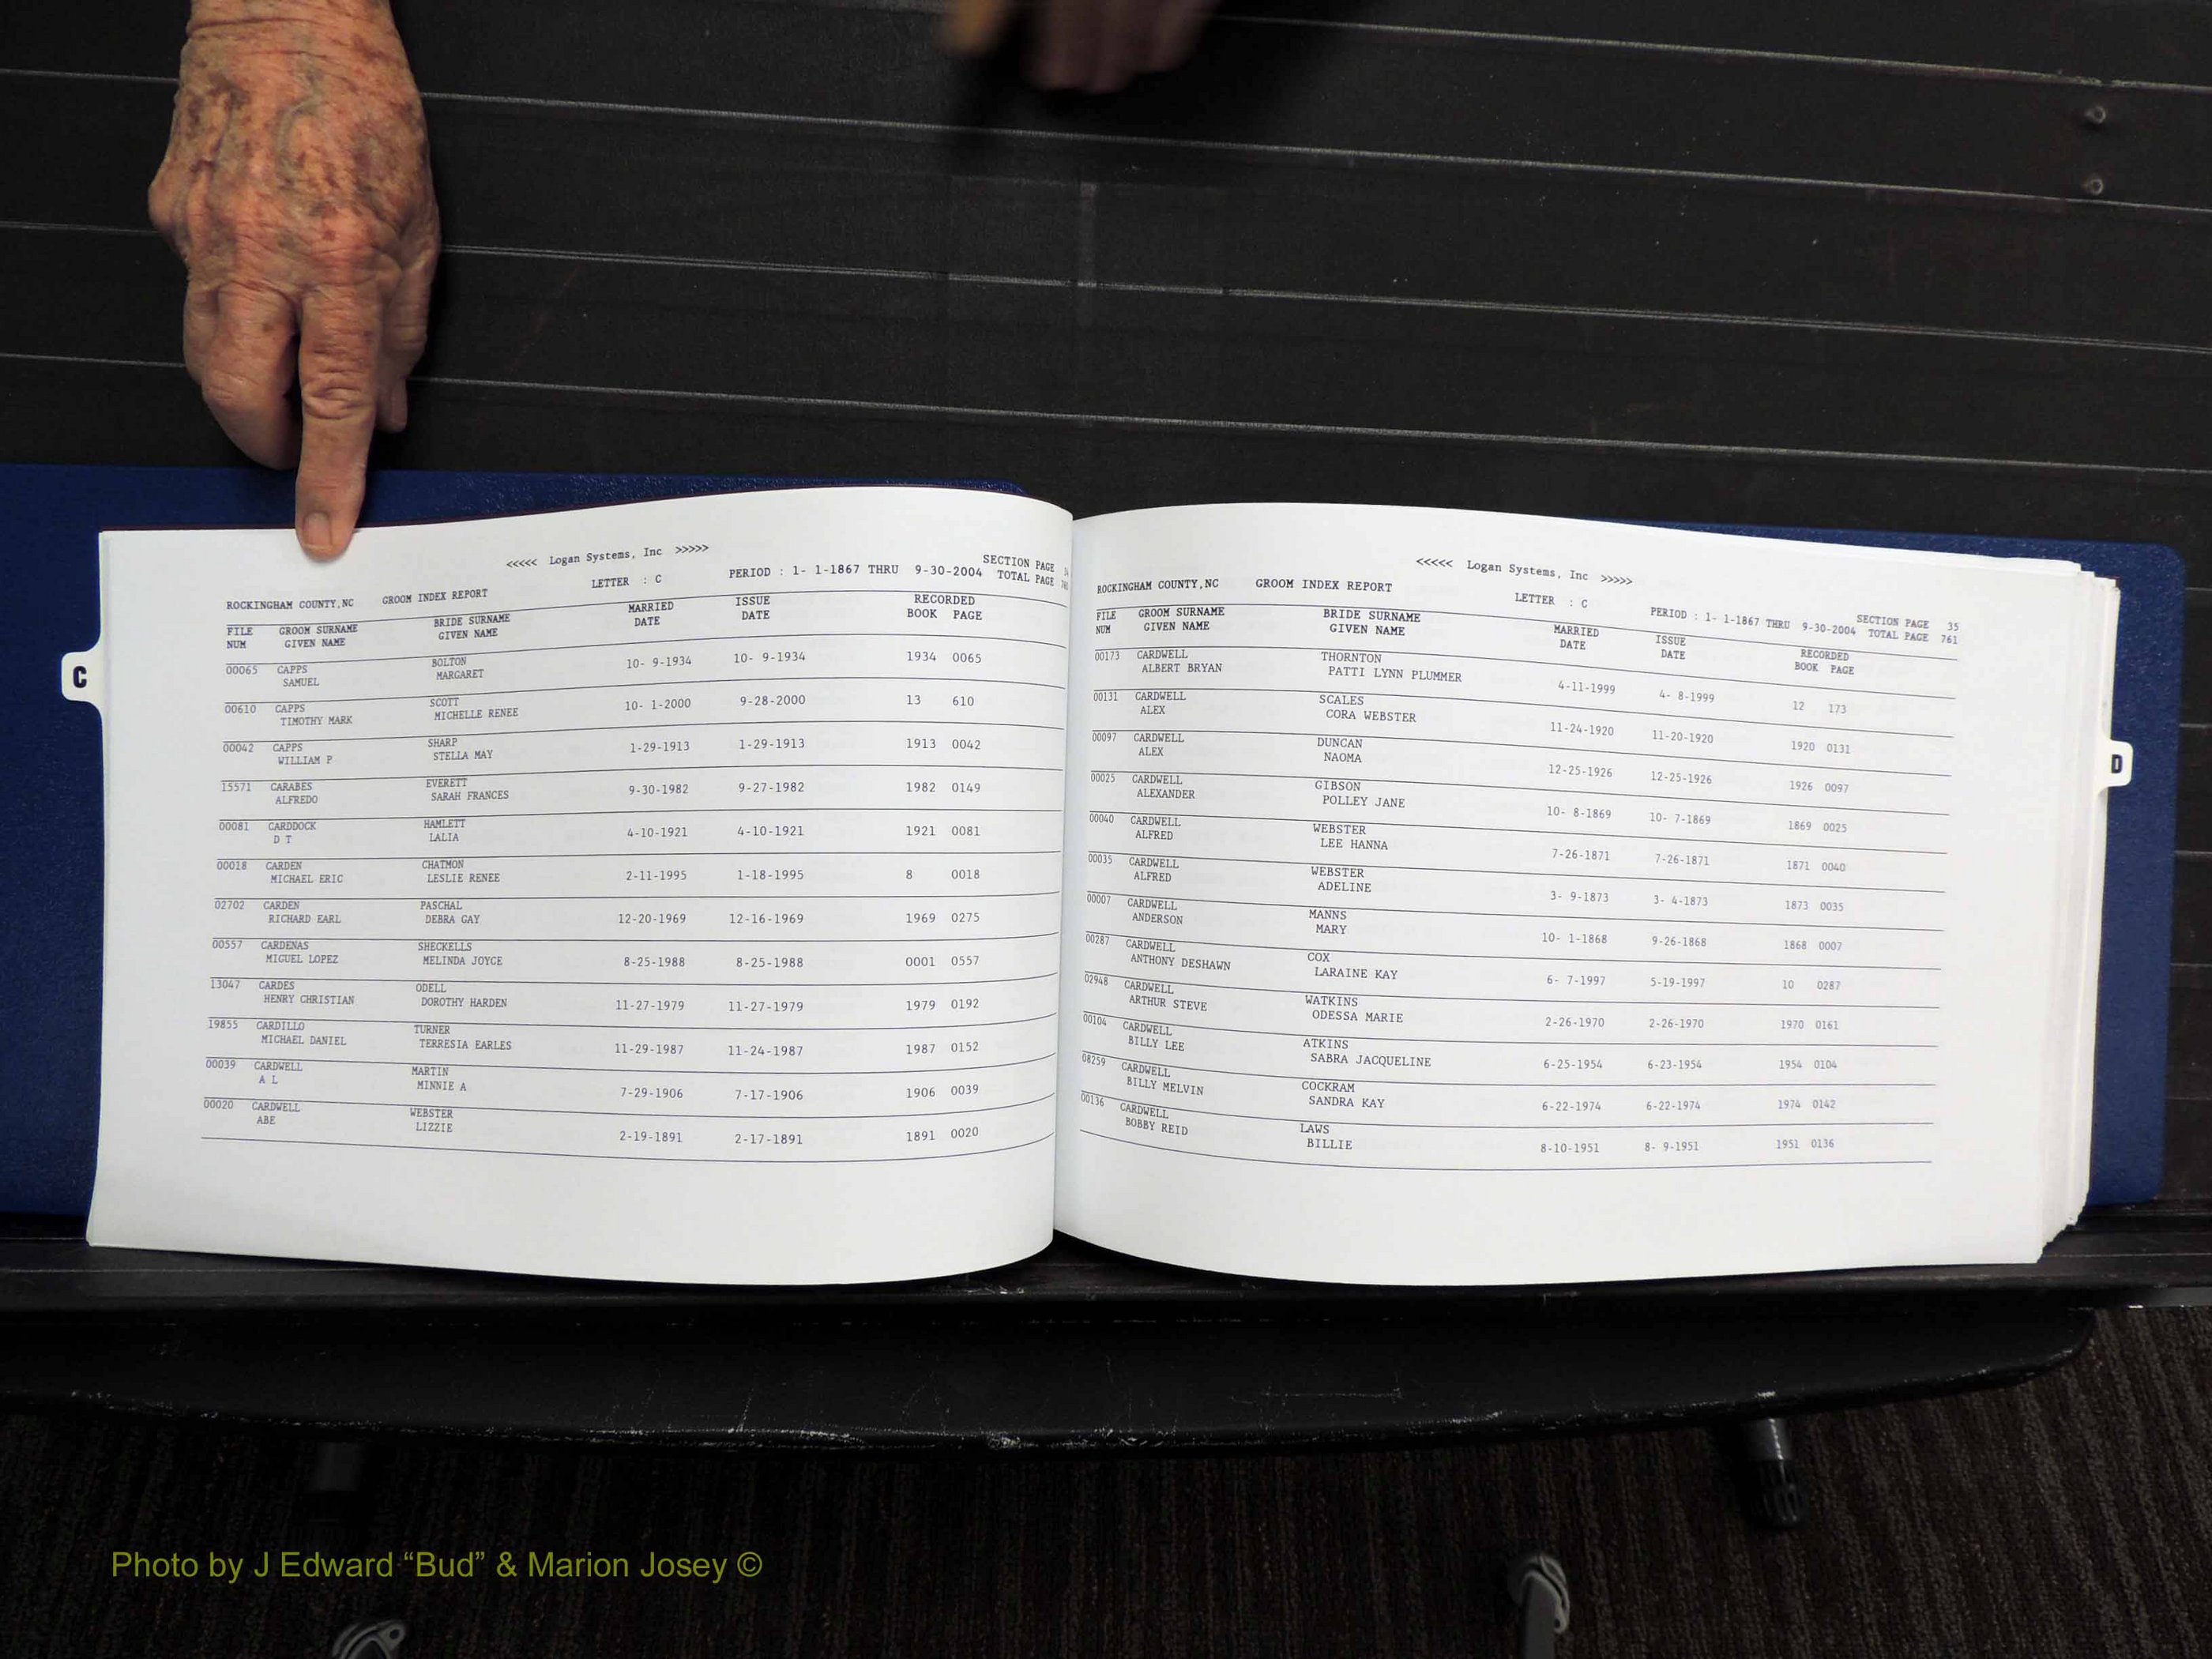 <<<<< Logan Systems, Inc >>>>>
ROCKINGHAM COUNTY,NC GROOM INDEX REPORT LETTER : C PERIOD : 1- 1-1867 THRU 9-30-2004 SECTION PAGE
TOTAL PAGE
FILE GROOM SURNAME BRIDE SURNAME MARRIED ISSUE RECORDED
NUM GIVEN NAME GIVEN NAME DATE DATE BOOK PAGE
00065 CAPPS BOLTON 10- 9-1934 10- 9-1934 1934 0065
SAMUEL MARGARET
00610 CAPPS SCOTT 10- 1-2000 9-28-2000 13 610
TIMOTHY MARK MICHELLE RENEE
00042 CAPPS SHARP 1-29-1913 1-29-1913 1913 0042
WILLIAM P STELLA MAY
15571 CARABES EVERETT 9-30-1982 9-27-1982 1982 0149
ALFREDO SARAH FRANCES
00081 CARDDOCK HAMLETT 4-10-1921 4-10-1921 1921 0081
D T LALIA
00018 CARDEN CHATMON 2-11-1995 1-18-1995 8 0018
MICHAEL ERIC LESLIE RENEE
02702 CARDEN PASCHAL 12-20-1969 12-16-1969 1969 0275
RICHARD EARL DEBRA GAY
00557 CARDENAS SHECKELLS 8-25-1988 8-25-1988 0001 0557
MIGUEL LOPEZ MELINDA JOYCE
13047 CARDES ODELL 11-27-1979 11-27-1979 1979 0192
HENRY CHRISTIAN DOROTHY HARDEN
19855 CARDILLO TURNER 11-29-1987 11-24-1987 1987 0152
MICHAEL DANIEL TERRESIA EARLES
00039 CARDWELL MARTIN 7-29-1906 7-17-1906 1906 0039
A L MINNIE A
00020 CARDWELL WEBSTER 2-19-1891 2-17-1891 1891 0020
ABE LIZZIE
C
<<<<< Logan Systems, Inc >>>>>
ROCKINGHAM COUNTY,NC GROOM INDEX REPORT LETTER : C PERIOD : 1- 1-1867 THRU 9-30-2004 SECTION PAGE 35
TOTAL PAGE 761
FILE GROOM SURNAME BRIDE SURNAME MARRIED ISSUE RECORDED
NUM GIVEN NAME GIVEN NAME DATE DATE BOOK PAGE
00173 CARDWELL THORNTON 4-11-1999 4- 8-1999 12 173
ALBERT BRYAN PATTI LYNN PLUMMER
00131 CARDWELL SCALES 11-24-1920 11-20-1920 1920 0131
ALEX CORA WEBSTER
00097 CARDWELL DUNCAN 12-25-1926 12-25-1926 1926 0097
ALEX NAOMA
00025 CARDWELL GIBSON 10- 8-1869 10- 7-1869 1869 0025
ALEXANDER POLLEY JANE
00040 CARDWELL WEBSTER 7-26-1871 7-26-1871 1871 0040
ALFRED LEE HANNA
00035 CARDWELL WEBSTER 3- 9-1873 3- 4-1873 1873 0035
ALFRED ADELINE
00007 CARDWELL MANNS 10- 1-1868 9-26-1868 1868 0007
ANDERSON MARY
00287 CARDWELL COX 6- 7-1997 5-19-1997 10 0287
ANTHONY DESHAWN LARAINE KAY
02948 CARDWELL WATKINS 2-26-1970 2-26-1970 1970 0161
ARTHUR STEVE ODESSA MARIE
00104 CARDWELL ATKINS 6-25-1954 6-23-1954 1954 0104
BILLY LEE SABRA JACQUELINE
08259 CARDWELL COCKRAM 6-22-1974 6-22-1974 1974 0142
BILLY MELVIN SANDRA KAY
00136 CARDWELL LAWS 8-10-1951 8- 9-1951 1951 0136
BOBBY REID BILLIE
D
Photo by J Edward “Bud” & Marion Josey ©